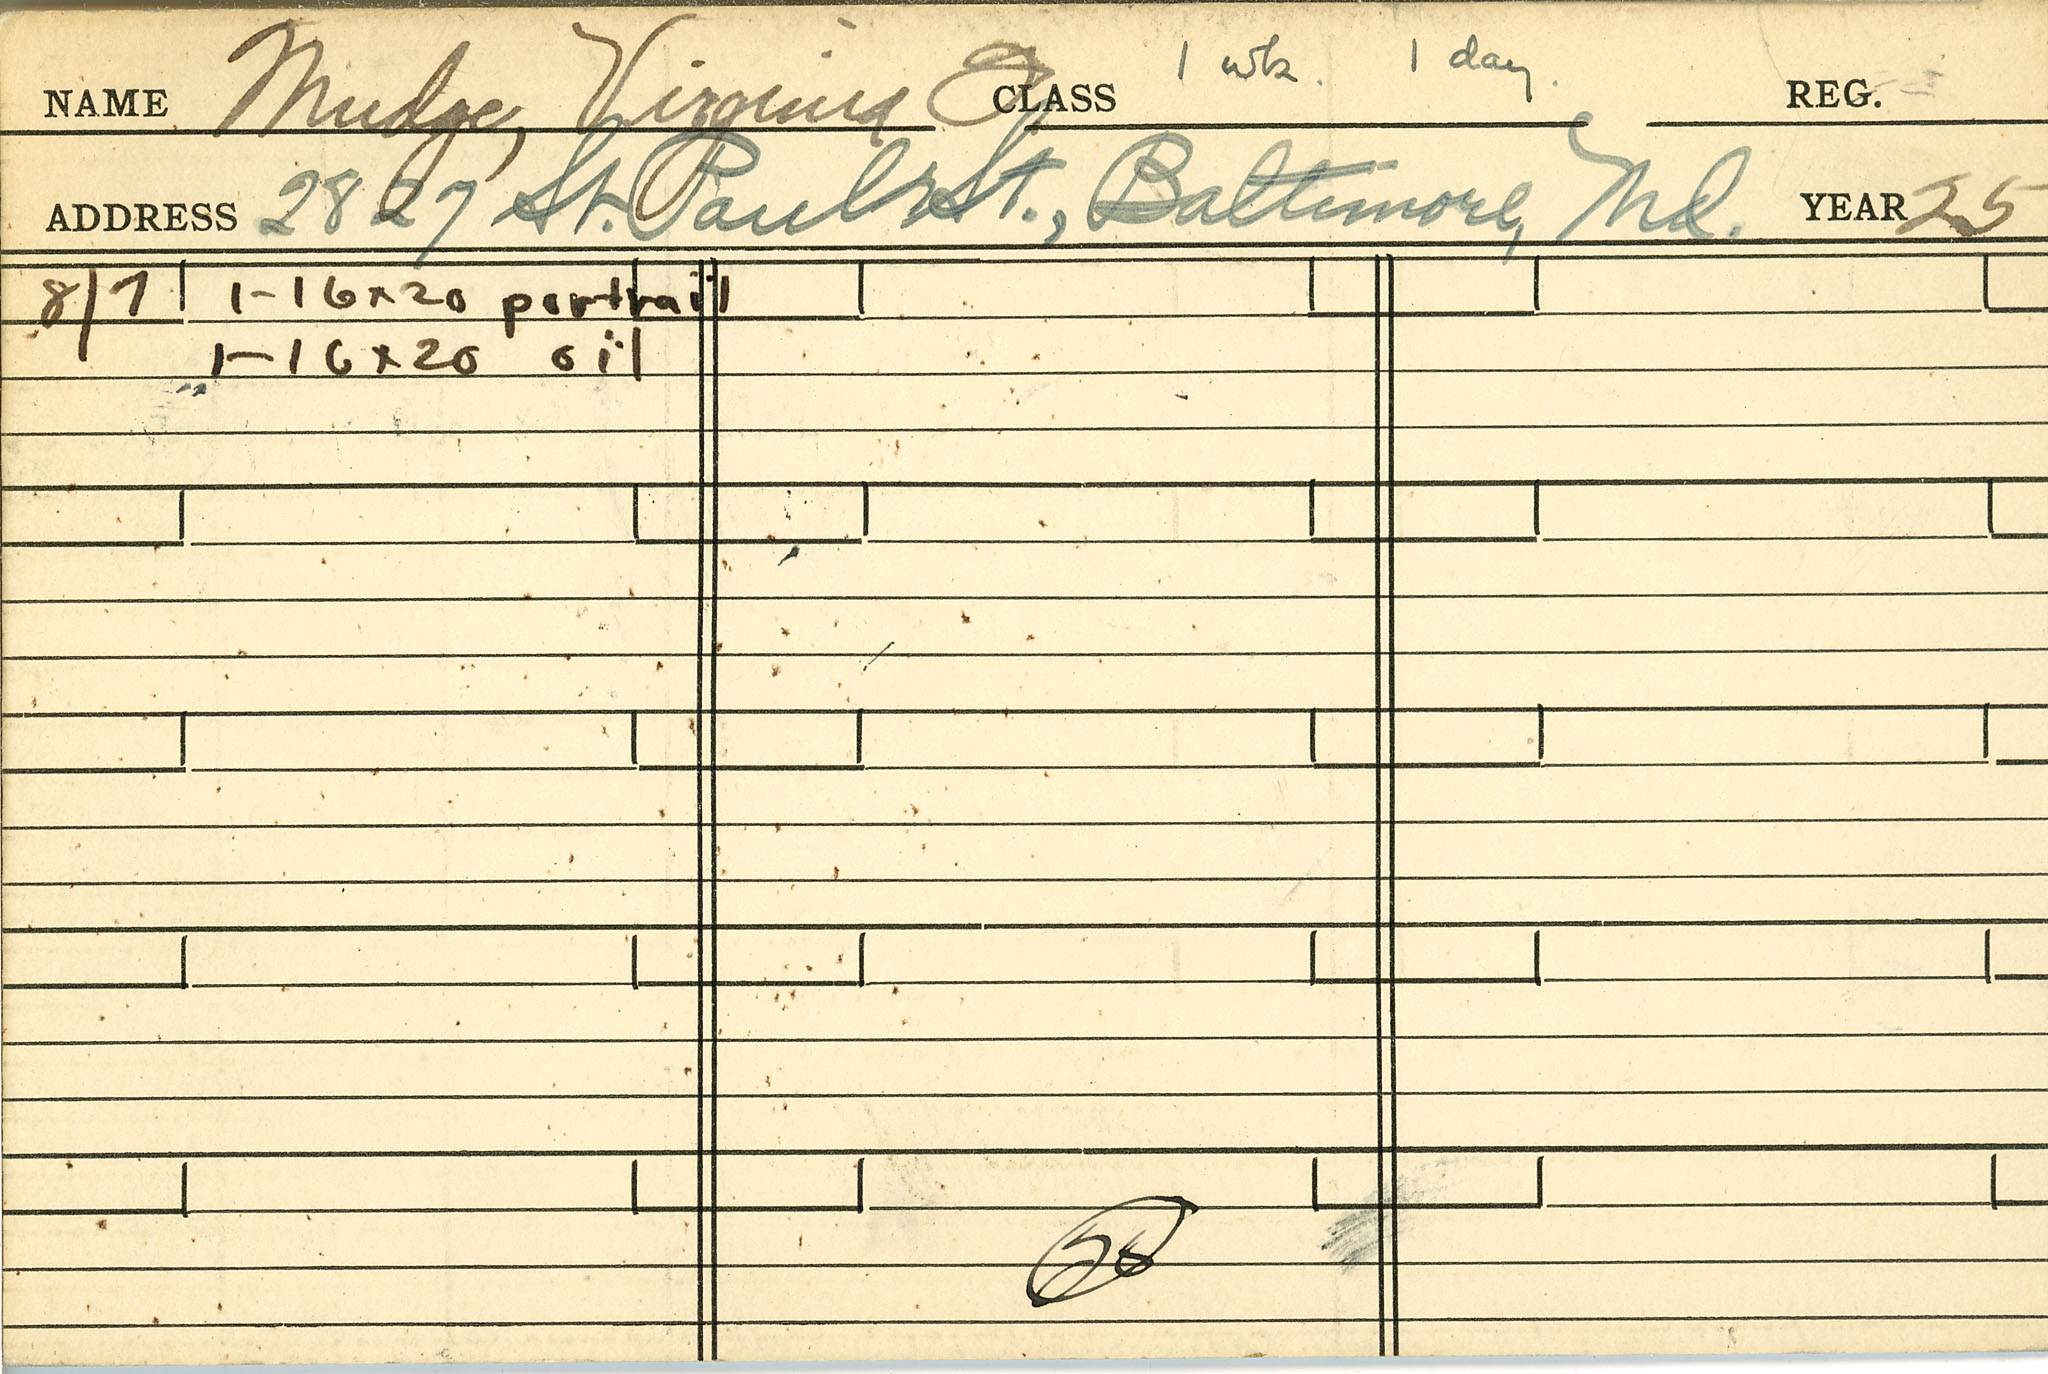 NAME Mudge, Virginia CLASS 1 wk. 1 day. REG.
ADDRESS 2827 St. Paul St., Baltimore, Md. YEAR 25
8/7 1-16x20 portrait
1-16x20 oil